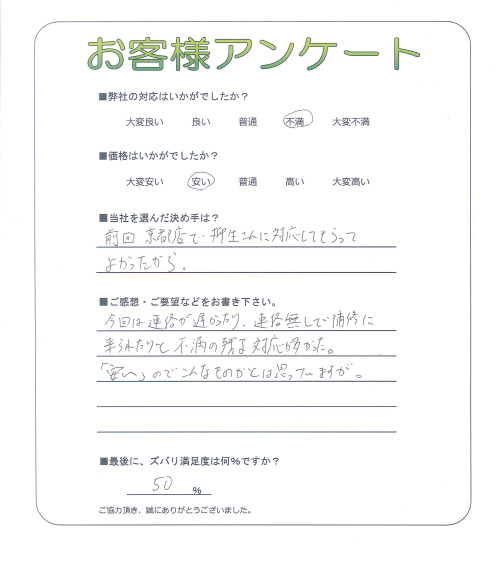 お客様アンケート
■弊社の対応はいかがでしたか？
大変良い 良い 普通 不満 大変不満
■価格はいかがでしたか？
大変安い 安い 普通 高い 大変高い
■当社を選んだ決め手は？
前回 京都店で柳生さんに対応してもらって
よかったから。
■ご感想・ご要望などをお書き下さい。
今回は連絡が遅かったり、連絡無しで補修に
来られたりで不満の残る対応が多かった。
「安い」のでこんなものかとは思っていますが。
■最後に、ズバリ満足度は何％ですか？
50 ％
ご協力頂き、誠にありがとうございました。